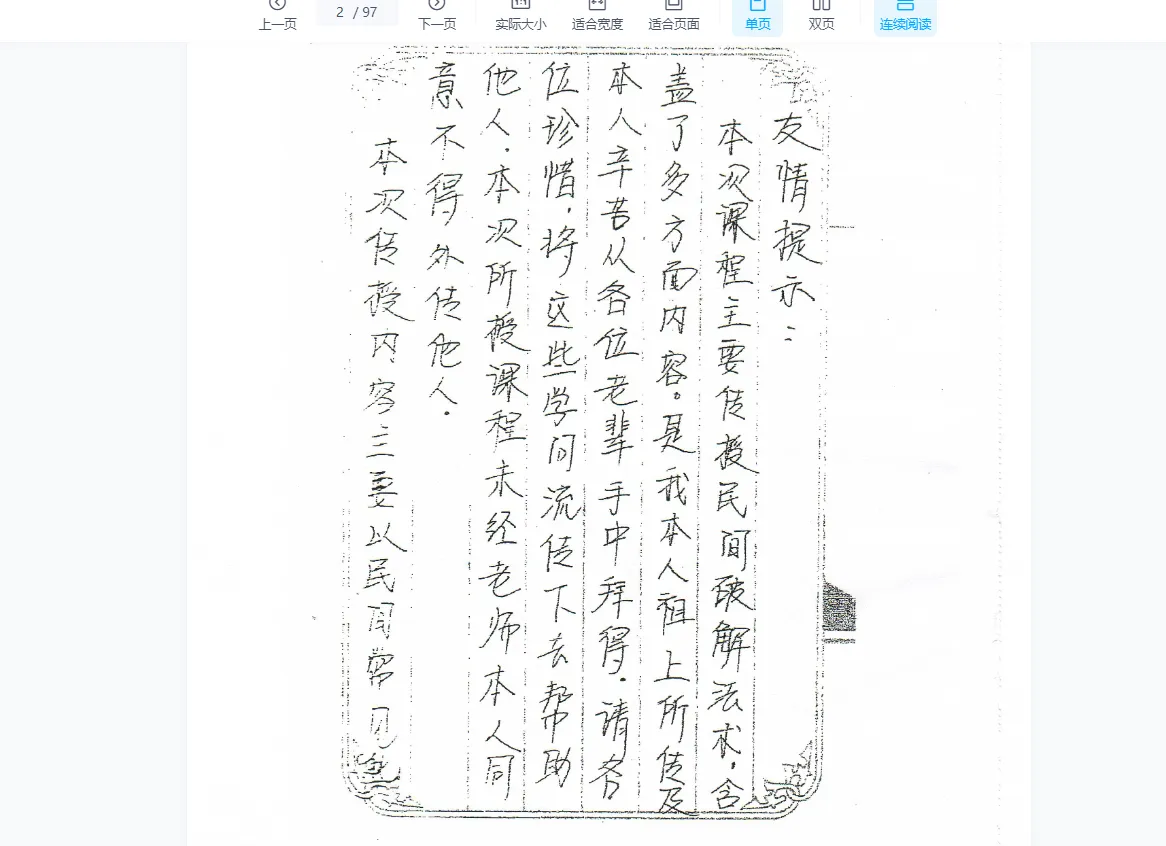 上一页
2 / 97
下一页
实际大小
适合宽度
适合页面
单页
双页
连续阅读
友情提示：
本次课程主要传授民间破解法术，含
盖了多方面内容。是我本人祖上所传及
本人辛苦从各位老辈手中拜得．请各
位珍惜．将这些学问流传下去帮助
他人．本次所授课程未经老师本人同
意不得外传他人．
本次传授内容主要以民间常见